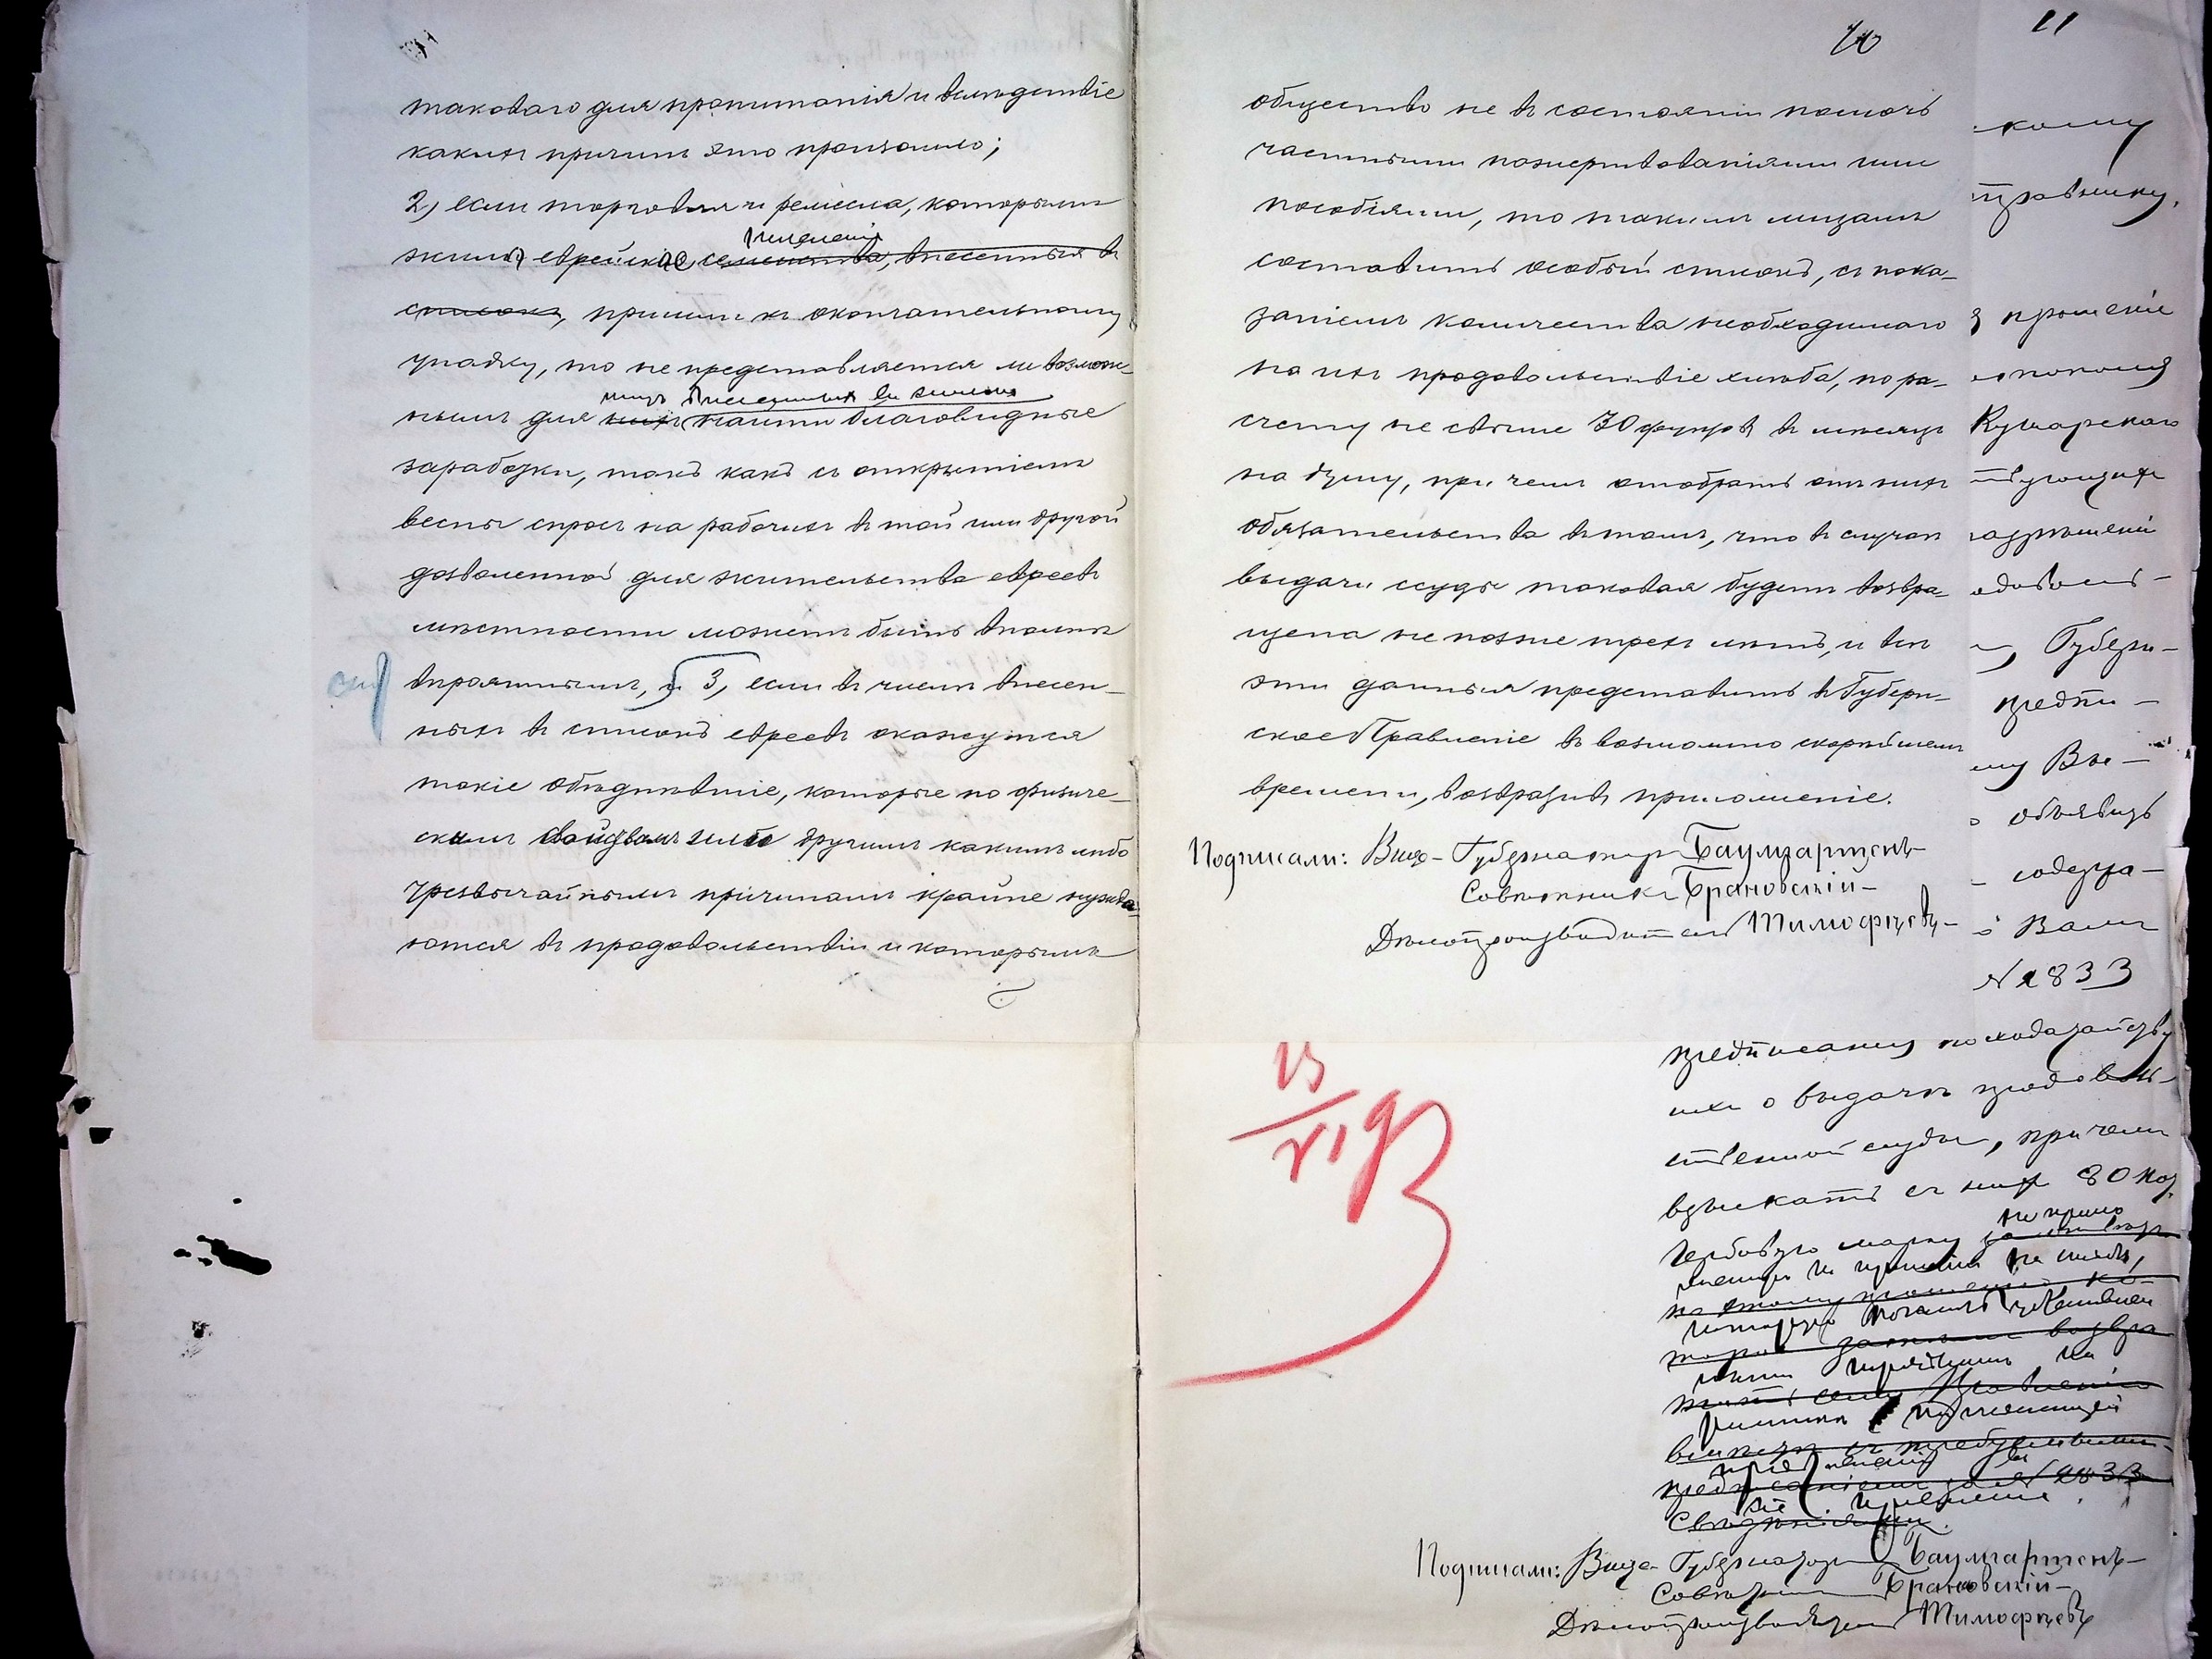 таковаго для пропитанія и вслѣдствіе
какихъ причинъ это произошло;
2) если торговля и ремесла, которыми
населеніе
жили еврейскае семейства, внесенныя въ
списокъ, пришли къ окончательному
упадку, то не представляется ли возмож-
лицъ внесенныхъ въ списокъ
нымъ для нихъ найти благовидные
заработки, такъ какъ съ открытіемъ
весны спросъ на рабочихъ въ той или другой
дозволенной для жительства евреевъ
мѣстности можетъ быть вполнѣ
вѣроятнымъ, и 3, если въ числѣ внесен-
ныхъ въ списокъ евреевъ окажутся
такіе обѣднѣвшіе, которые по физиче-
скимъ свойствамъ или другимъ какимъ либо
чрезвычайнымъ причинамъ крайне нужда-
ются въ продовольствіи и которымъ
10
общество не въ состояніи помочь
частными пожертвованіями или
пособіями, то такимъ лицамъ
составить особый списокъ, съ пока-
заніемъ количества необходимаго
на ихъ продовольствіе хлѣба, по ра-
счету не свыше 30 фунтовъ въ мѣсяцъ
на душу, при чемъ отобрать отъ нихъ
обязательства въ томъ, что въ случаѣ
выдачи ссуды таковая будетъ возвра-
щена не позже трехъ лѣтъ, и всѣ
эти данныя представить въ Губерн-
ское Правленіе въ возможно скорѣйшемъ
времени, возвративъ приложеніе.
Подписали: Вице-Губернаторъ Баумгартенъ
Совѣтникъ Брановскій
Дѣлопроизводитель Тимофѣевъ
11
кому
правнику.
прошеніе
Кушарскаго
ствующихъ
азрѣшеніи
одоволь-
Губерн-
предпи-
му Вы-
объявить
содержа-
Вамъ
№ 2833
предписанію по ходатайству
ихъ о выдачѣ продоволь-
ственной ссуды, при чемъ
взыскать съ нихъ 80 коп.
гербовую марку
не прило
женную къ прошенію
которую
предписаніемъ за № 2833
Свѣдѣніями.
Подписали: Вице-Губернаторъ Баумгартенъ
Совѣтникъ Брановскій
Дѣлопроизводитель Тимофѣевъ